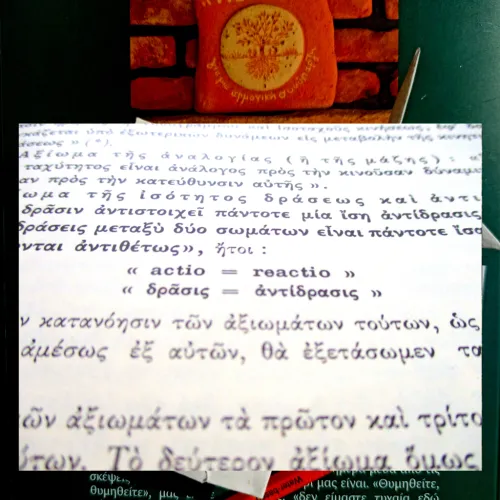 για μια αρμονική συνύπαρξη
κάζεται ὑπὸ ἐξωτερικῶν δυνάμεων εἰς μεταβολὴν τῆς κινητι
άσεως » (*).
Ἀξίωμα τῆς ἀναλογίας (ἢ τῆς μάζης): «
ταχύτητος εἶναι ἀνάλογος πρὸς τὴν κινοῦσαν δύναμι
αν πρὸς τὴν κατεύθυνσιν αὐτῆς ».
ωμα τῆς ἰσότητος δράσεως καὶ ἀντι
δρᾶσιν ἀντιστοιχεῖ πάντοτε μία ἴση ἀντίδρασις
δράσεις μεταξὺ δύο σωμάτων εἶναι πάντοτε ἴσα
νται ἀντιθέτως», ἤτοι :
« actio = reactio »
« δρᾶσις = ἀντίδρασις »
ν κατανόησιν τῶν ἀξιωμάτων τούτων, ὡς
ἀμέσως ἐξ αὐτῶν, θὰ ἐξετάσωμεν τα
ῶν ἀξιωμάτων τὰ πρῶτον καὶ τρίτο
ύτων. Τὸ δεύτερον ἀξίωμα ὅμως
σκέψεις,
θυμηθείτε», μας
μας είναι. «Θυμηθείτε,
«δεν είμαστε τυχαία εδώ